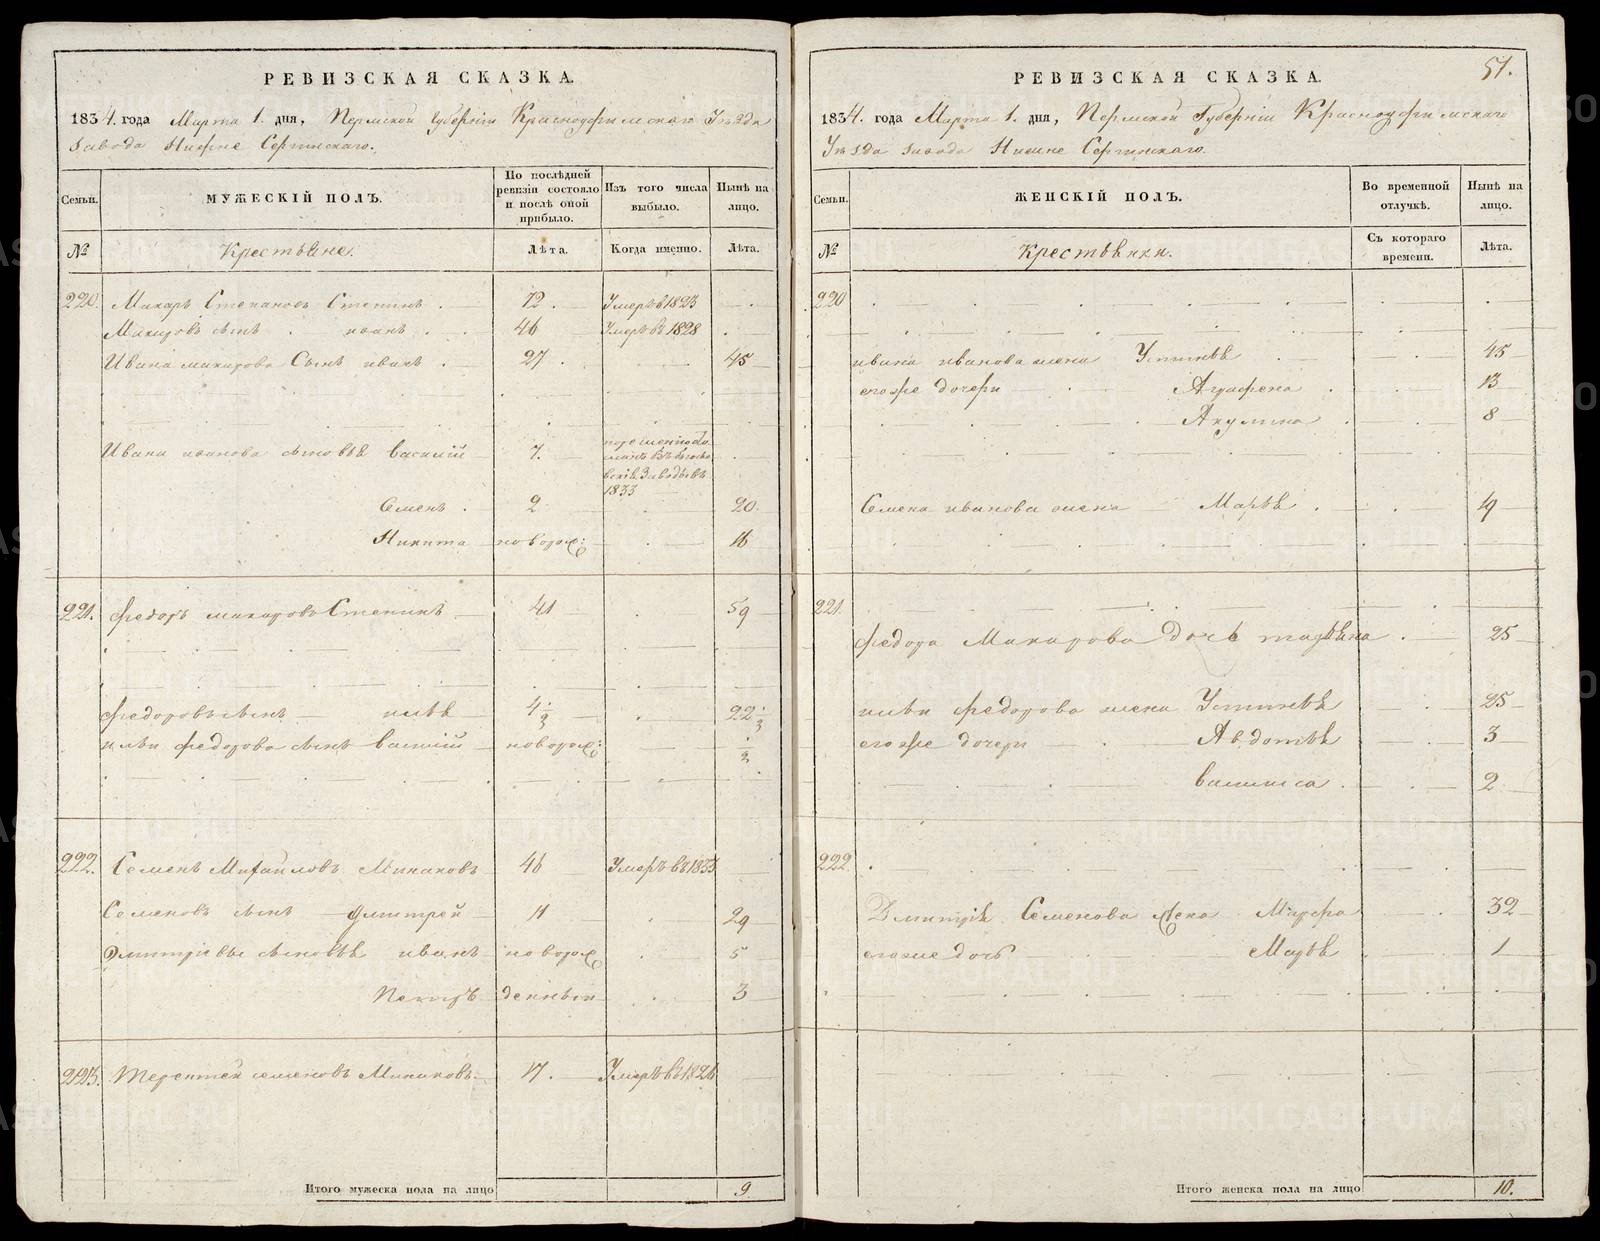 РЕВИЗСКАЯ СКАЗКА.
1834. года Марта 1. дня, Пермской Губернiи Красноуфимскаго Уѣзда
Завода Нижне Сергинскаго.
Семьи.
МУЖЕСКIЙ ПОЛЪ.
По послѣдней ревизiи состояло и послѣ оной прибыло.
Изъ того числа выбыло.
Нынѣ на лицо.
№
Крестьяне.
Лѣта.
Когда именно.
Лѣта.
220. Макаръ Степановъ Степинъ . 72. Умеръ в 1823
Макаровъ сынъ . иванъ . 46 Умеръ въ 1828
Ивана макарова Сынъ иванъ . 27. 45
Ивана иванова сыновья василiй 7.
1833
Семенъ . 2 20.
Никита новорож: 16
221. федоръ макаровъ Степинъ 41 59
федоровъ сынъ илья 4 1/2 22 1/2
ильи федорова сынъ василiй новорож: 1/2
222. Семенъ Михайловъ Минаковъ 46 Умеръ въ 1833
Семеновъ сынъ дмитрей 11 29
Дмитрiевы сыновья иванъ новорож 5
Петръ денныи 3
223. Терентей семеновъ Минаковъ. 17. Умеръ въ 1826
Итого мужеска пола на лицо 9
51.
РЕВИЗСКАЯ СКАЗКА.
1834. года Марта 1. дня, Пермской Губернiи Красноуфимскаго
Уѣзда завода Нижне Сергинскаго.
Семьи.
ЖЕНСКIЙ ПОЛЪ.
Во временной отлучкѣ.
Нынѣ на лицо.
№
Крестьянки.
Съ котораго времени.
Лѣта.
220
ивана иванова жена Устинья 45
егоже дочери Агрофена 13
Акулина 8
Семена иванова жена Марья . 19
221.
федора Макарова дочь татьяна . 25
ильи федорова жена Устинья 25
егоже дочери Авдотья 3
василиса . 2
222
Дмитрiя Семенова жена Марфа 32
егоже дочь Марья 1
Итого женска пола на лицо 10.
METRIKI.GASO-URAL.RU